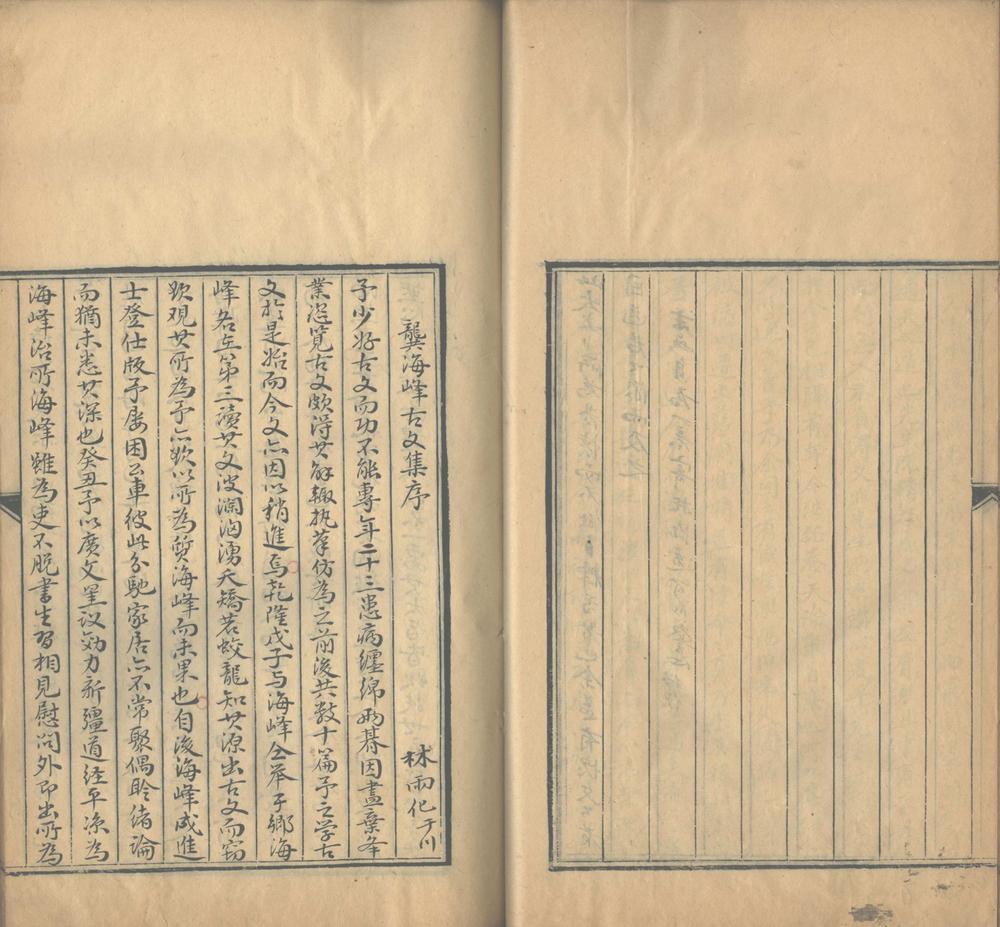 龔海峰古文集序
林雨化于川
予少好古文而功不能專年二十三患病纏綿兩朞因盡棄夲
業恣覽古文頗得其解輙執筆仿為之前後共數十篇予之學古
文於是始而今文亦因以稍進焉乾隆戊子与海峰仝举于鄉海
峰名在第三讀其文波瀾洶湧夭矯若蛟龍知其源出古文而竊
欲观其所為予亦欲以所為質海峰而未果也自後海峰成進
士登仕版予屡困公車彼此分馳家居亦不常聚偶聆绪論
而猶未悉其深也癸丑予以廣文罣议効力新疆道经平凉為
海峰治所海峰雖為吏不脱書生習相見慰问外即出所為